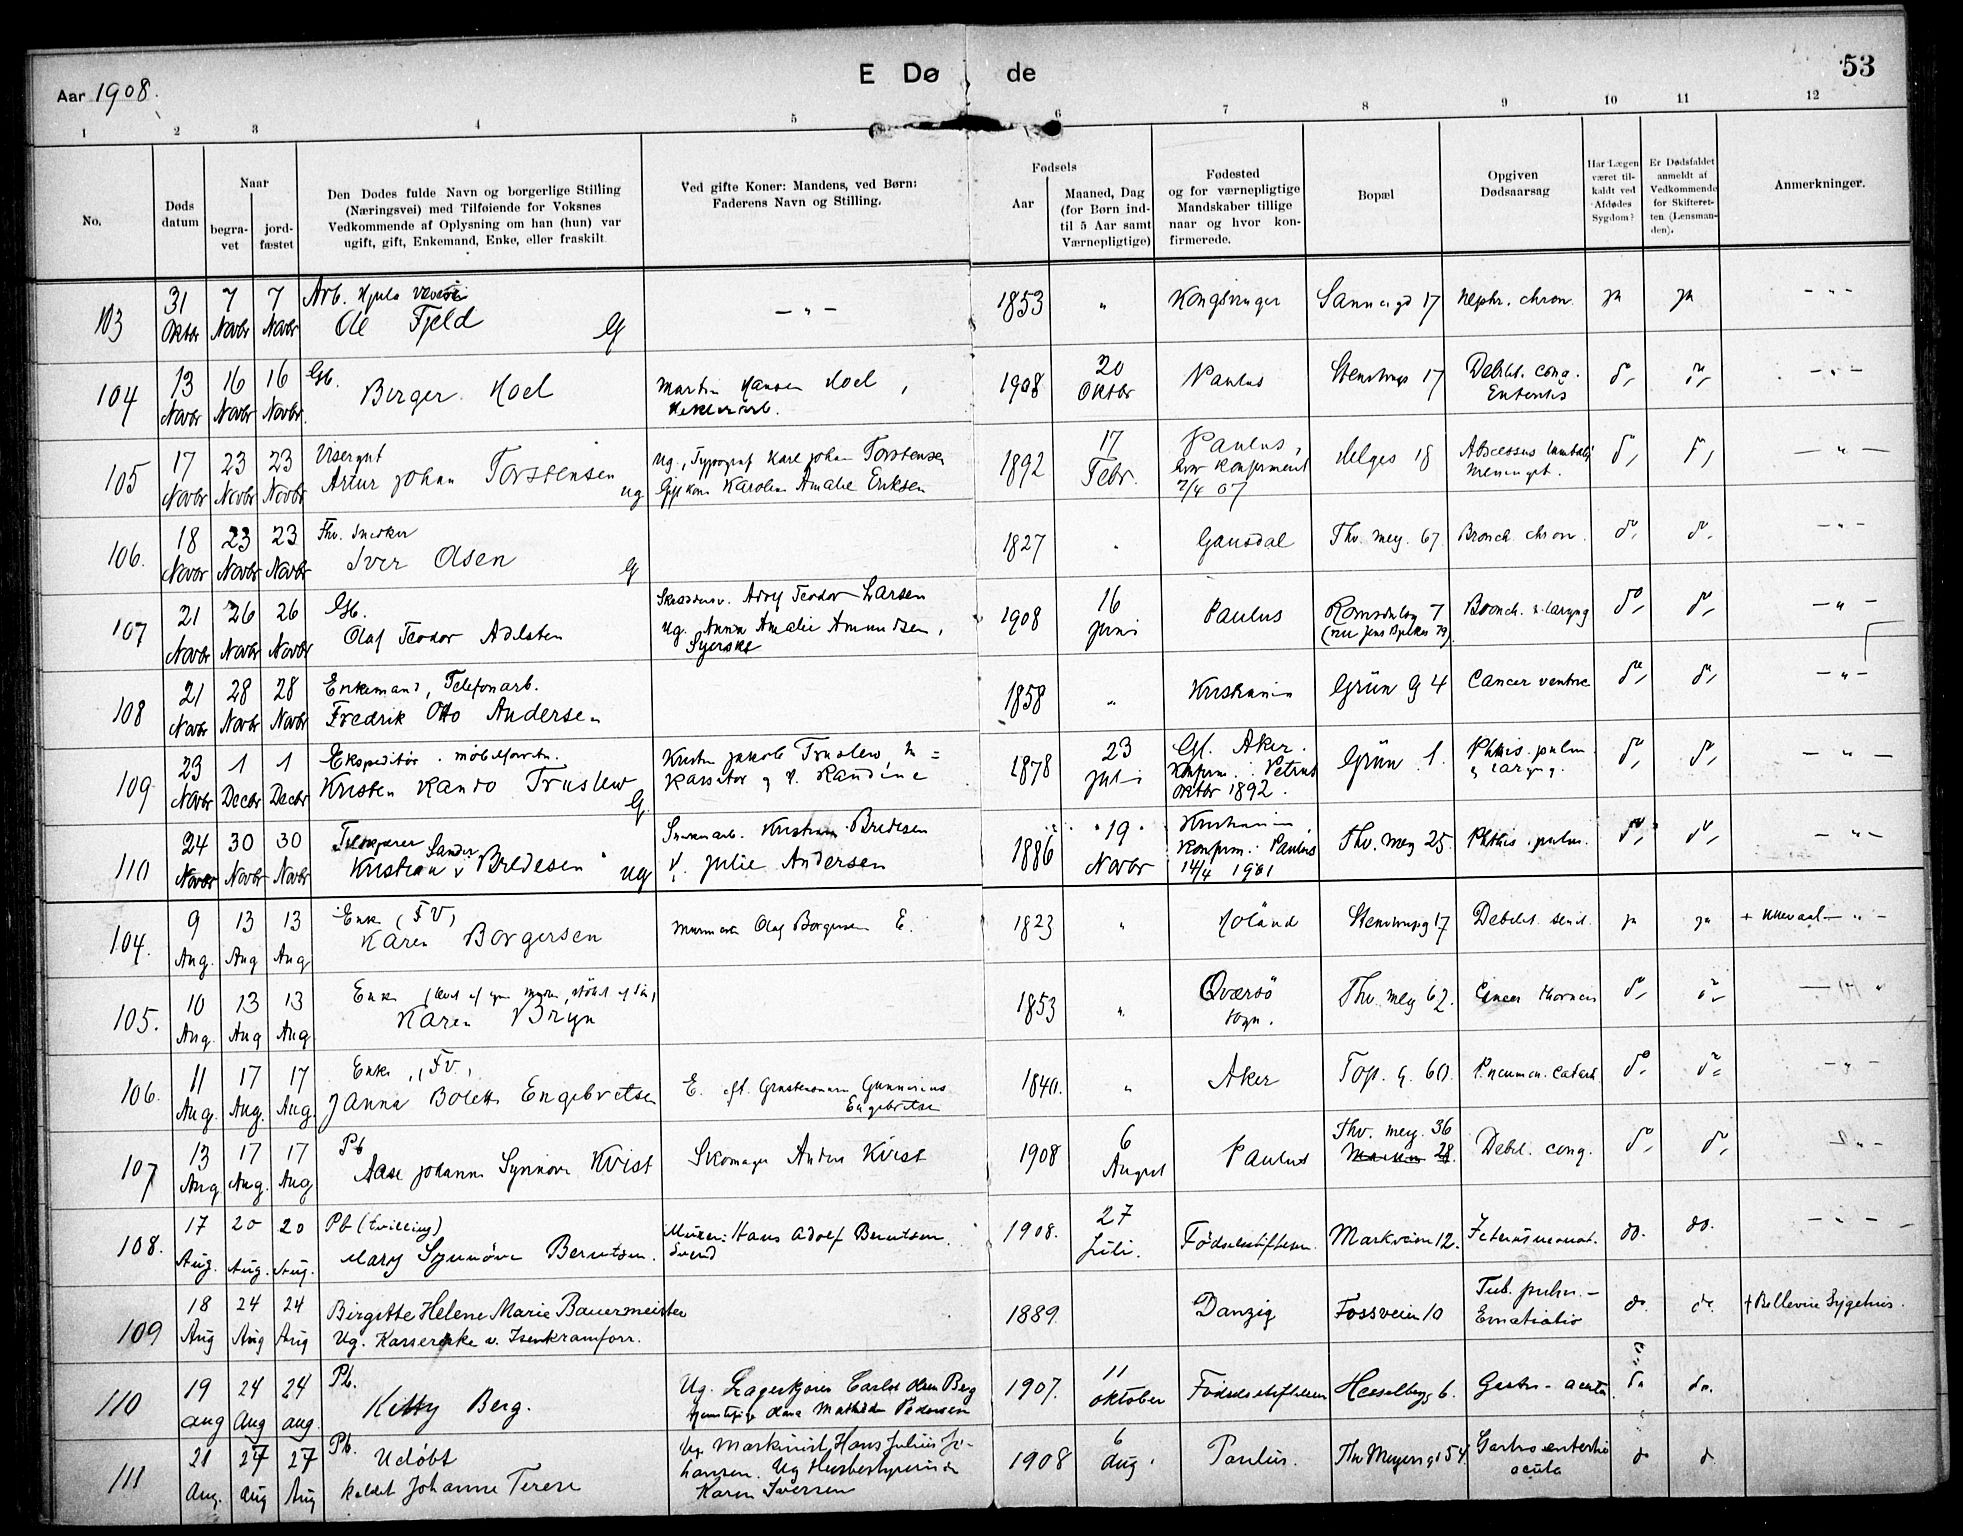 E Dø de
53
Aar 1908.
1 2 3 4 5 6 7 8 9 10 11 12
No.
Døds datum
Naar
begra-vet
jord-fæstet
Den Dødes fulde Navn og borgerlige Stilling
(Næringsvei) med Tilføiende for Voksnes
Vedkommende af Oplysning om han (hun) var
ugift, gift, Enkemand, Enke, eller fraskilt
Ved gifte Koner: Mandens, ved Børn:
Faderens Navn og Stilling.
Fødsels
Aar
Maaned, Dag
(for Børn ind-
til 5 Aar samt
Værnepligtige)
Fødested
og for værnepligtige
Mandskaber tillige
naar og hvor kon-
firmerede.
Bopæl
Opgiven
Dødsaarsag
Har Lægen
været til-
kaldt ved
Afdødes
Sygdom?
Er Dødsfaldet
anmeldt af
Vedkommende
for Skifteret-
ten (Lensman-
den).
Anmerkninger.
103 31 Oktbr 7 Novbr 7 Novbr Arb.
Ole Fjeld G — " — 1853 " Kongsvinger Sannergd 17 Nephr. chron. ja ja — " —
104 13 Novbr 16 Novbr 16 Novbr Gb.
Birger Hoel Martin Hansen Hoel 1908 20 Oktbr Paulus Stenstrups 17 Debil. cong. Enteritis do do — " —
105 17 Novbr 23 Novbr 23 Novbr Visergut
Artur Johan Torstensen ug Ug. Typograf Karl Johan Torstensen
Karoline Amalie Eriksen 1892 17 Febr. Paulus, konfirmert 7/4 07 Helges 18 Abscessus do do — " —
106. 18 Novbr 23 Novbr 23 Novbr Fhv. Snedker
Iver Olsen G 1827 " Gausdal Thv. mey. 67 Bronch. chron. do do — " —
107 21 Novbr 26 Novbr 26 Novbr Gb.
Olaf Teodor Adolf Teodor Larsen
Ug. Anna Amalie Amundsen,
Syerske 1908 16 Juni Paulus Romsdalsg 7
(nu Jens Bjelkes 79) Bronch. & laryng do do — " —
108 21 Novbr 28 Novbr 28 Novbr Enkemand, Telefonarb.
Fredrik Otto Andersen 1858 " Kristiania Grün g 4 Cancer ventric do do — " —
109 23 Novbr 1 Decbr 1 Decbr Ekspeditør. møbelforretn.
Kristen Truslew G. Jakob Truslew,
1878 23 Juli Gl. Aker.
Konfirm. Petrus
Oktbr 1892. Grün 1. Phthis. pulm.
& laryng. do do — " —
110 24 Novbr 30 Novbr 30 Novbr
Kristian Sander Bredesen ug Snekerarb. Kristian Bredesen
Julie Andersen 1886 19 Novbr Kristiania,
Konfirm. Paulus
14/4 1901 Thv. Mey 25. Phthis. pulm. do do — " —
104. 9 Aug. 13 Aug 13 Aug Enke (FV)
Karen Borgersen Olaf Borgersen E. 1823 " Høland Stenstrupsg 17 Debilit. senil. ja ja + Ullevaal — " —
105. 10 Aug. 13 Aug 13 Aug Enke
Karen Bryn 1853 " Qværsö
sogn. Thv. mey 62. Cancer do do
106. 11 Aug. 17 Aug. 17 Aug. Enke, (FV,
Janna Bolette Engebretsen E. eft. Gunnerius
Engebretsen 1840. " Aker Top. g. 60. Pneumon. catarh. do do — " —
107 13 Aug 17 Aug. 17 Aug Pb
Aase Johanne Synnøve Kvist Skomager Anders Kvist 1908 6 August Paulus Thv. mey. 36
28. Debil. cong. do do — " —
108. 17 Aug. 20 Aug. 20 Aug. Pb (tvilling)
Mary Synnöve Berntsen. Murer: Hans Adolf Berntsen.
Svend 1908. 27 Juli. Fødselsstiftelsen. Markveien 12. Icterus neonat. do. do. — " —
109 18 Aug 24 Aug 24 Aug Birgitte Helene Marie Bauermeister
Ug. Kassererske v. Isenkramforr. 1889. Danzig Fossveien 10 Tub. pulm. —
Ematiatio do. do. + Bellevue Sygehus.
110 19 aug 24 aug 24 aug. Pb.
Kitty Berg. Ug. Lagerkjører Carlos Olsen Berg
Mathilde Pedersen 1907. 11 oktober Fødselsstiftelsen Hesselbergs 6. Gastr. acuta do do.
111 21 Aug. 27 aug 27 Aug Pb. Udøbt
kaldet Johanne Terese Ug Maskinist Hans Julius Jo-
hansen. Ug Husbestyrerinde
Karen Iversen 1908 6 aug. Paulus. Thv Meyersg 54 Gastro enteritis
acuta do do